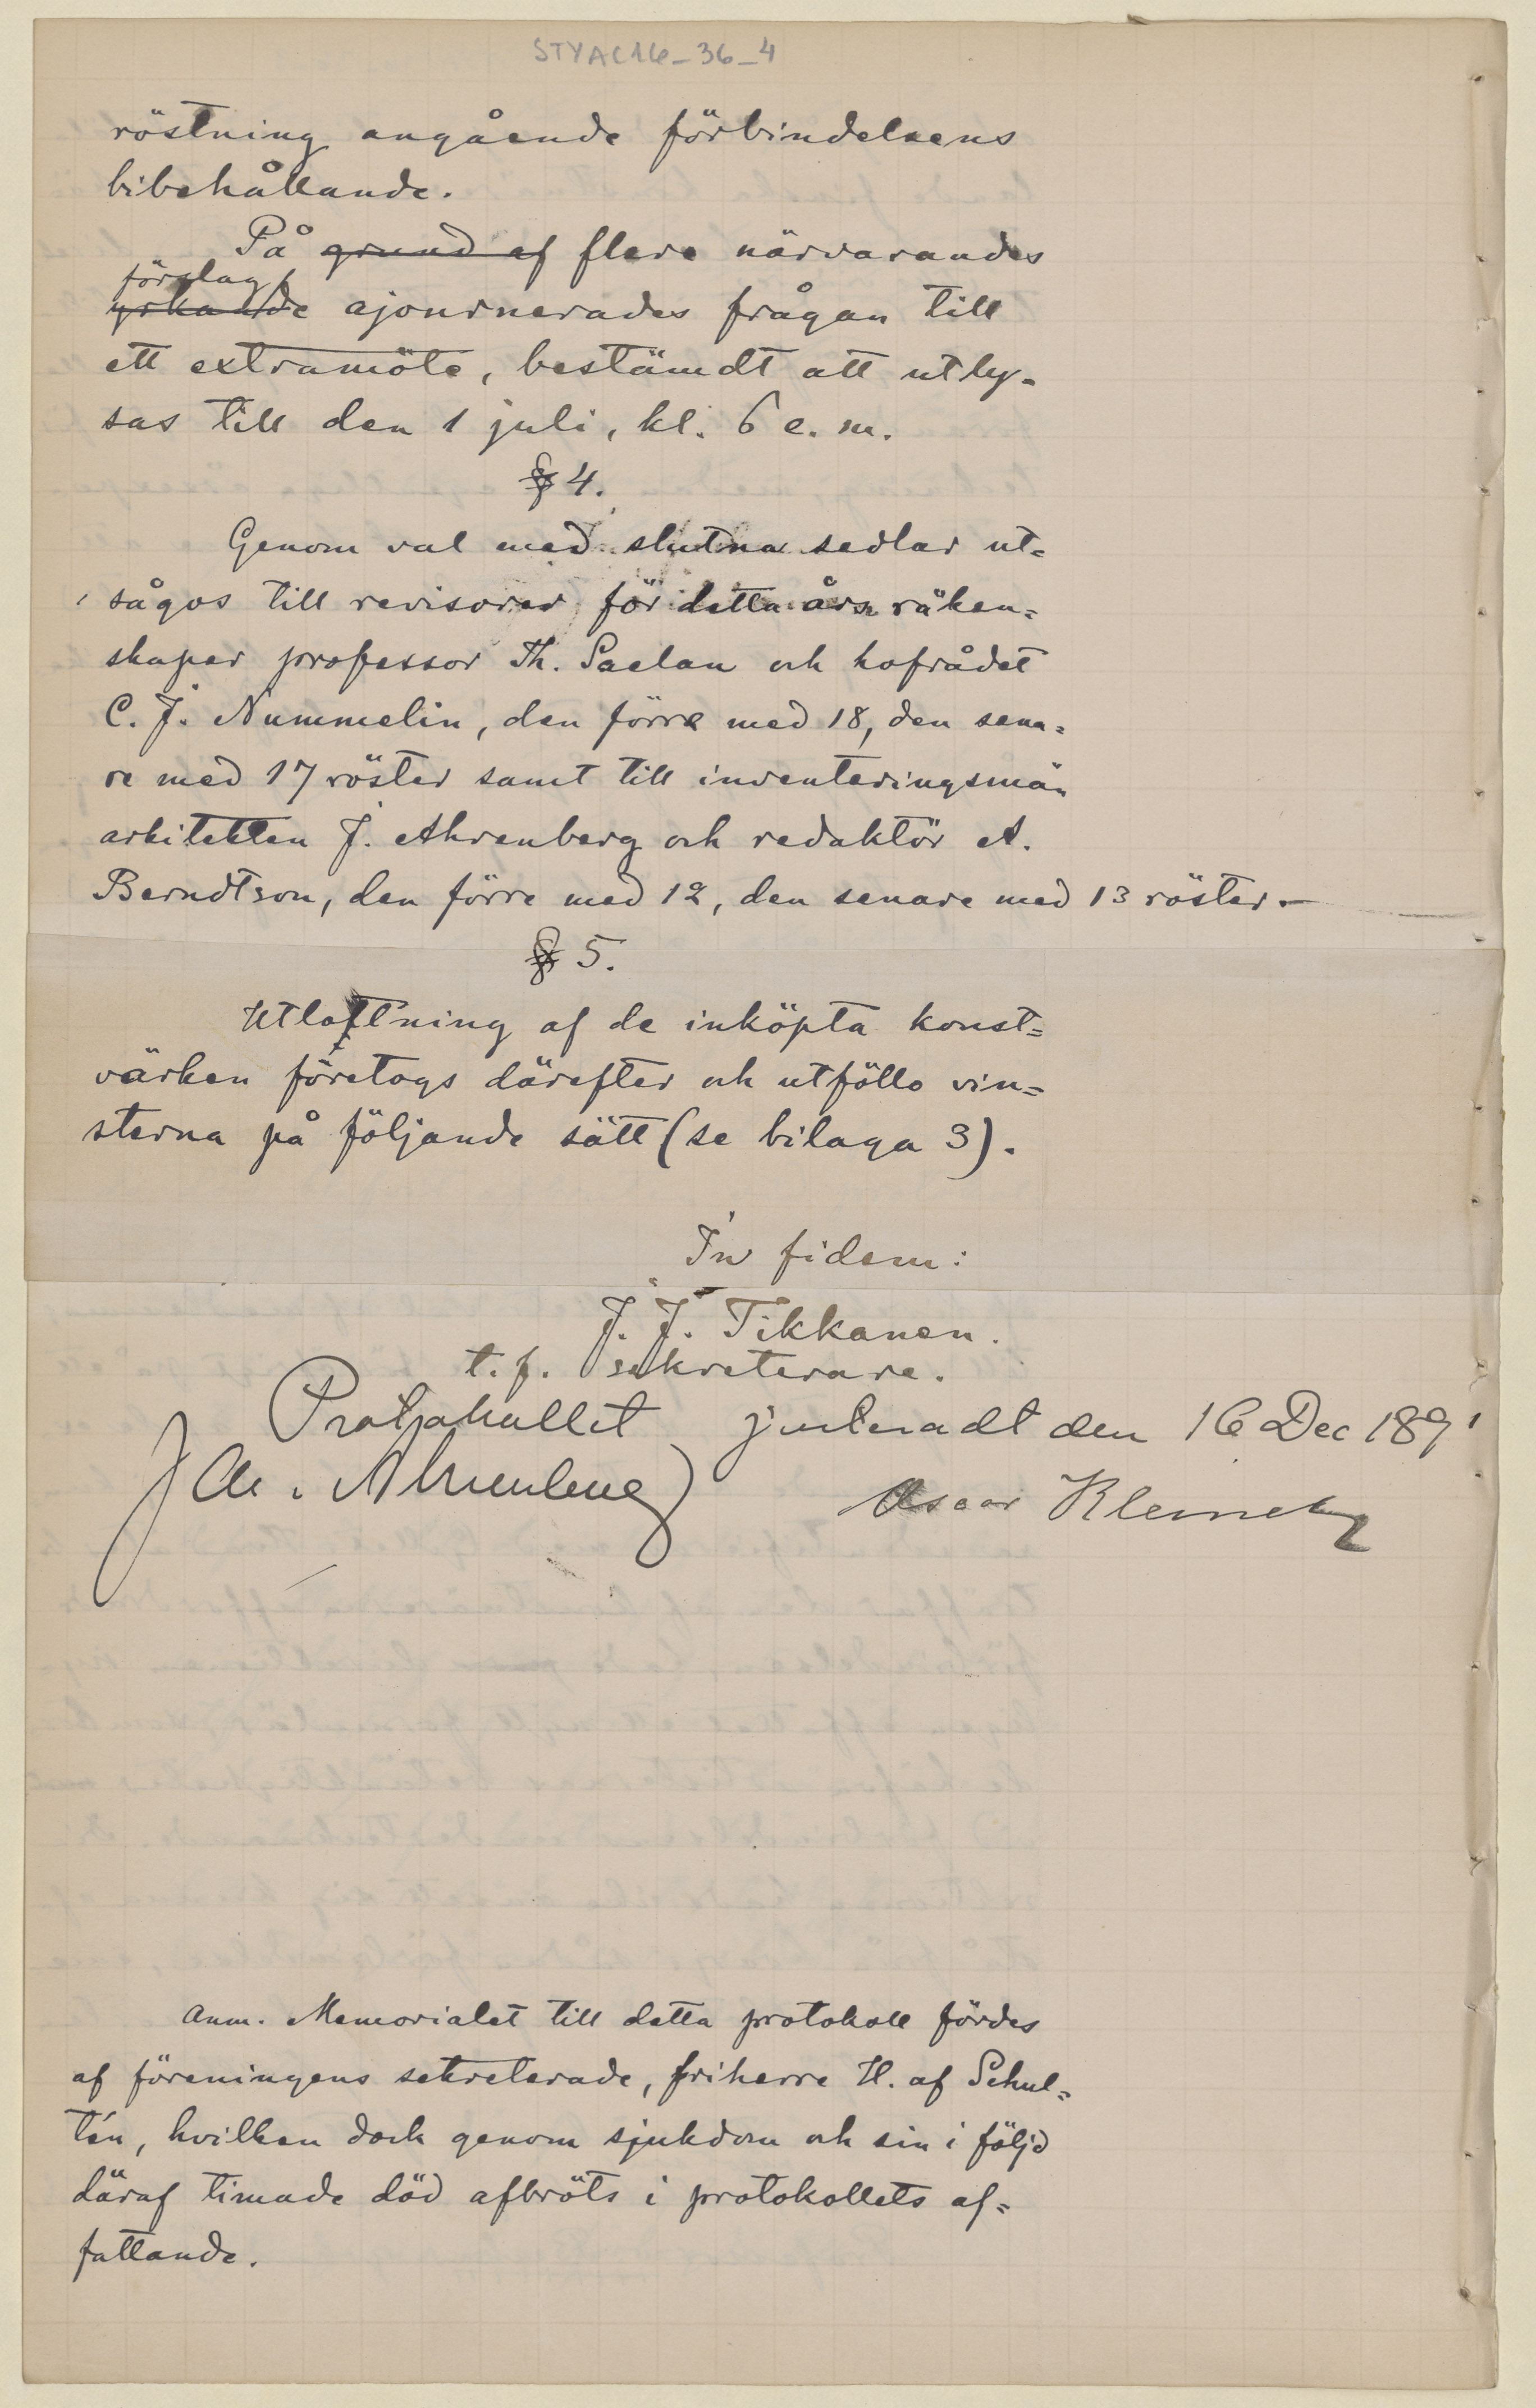 STYAC16_36_4
röstning angående förbindelsens
bibehållande.
På grund af flere närvarandes
förslag
yrkande ajournerades frågan till
ett extramöte, bestämdt att utly-
sas till den 1 juli, kl. 6 e. m.
§ 4.
Genom val med slutna sedlar ut=
sågos till revisorer för detta års räken=
skaper professor Th. Saelan och hofrådet
C. J. Nummelin, den förre med 18, den sena=
re med 17 röster samt till inventeringsmän
arkitekten J. Ahrenberg och redaktör A.
Berndtson, den förre med 12, den senare med 13 röster.—
§ 5.
Utlottning af de inköpta konst=
värken företogs därefter och utföllo vin=
sterna på följande sätt (se bilaga 3).
In fidem:
J. J. Tikkanen.
t. f. sekreterare.
Protokollet justeradt den 16 Dec 1891
Jac. Ahrenberg
Oscar Kleineh
Anm. Memorialet till detta protokoll fördes
af föreningens sekreterade, friherre H. af Schul=
tén, hvilken dock genom sjukdom och sin i följd
däraf timade död afbröts i protokollets af=
fattande.